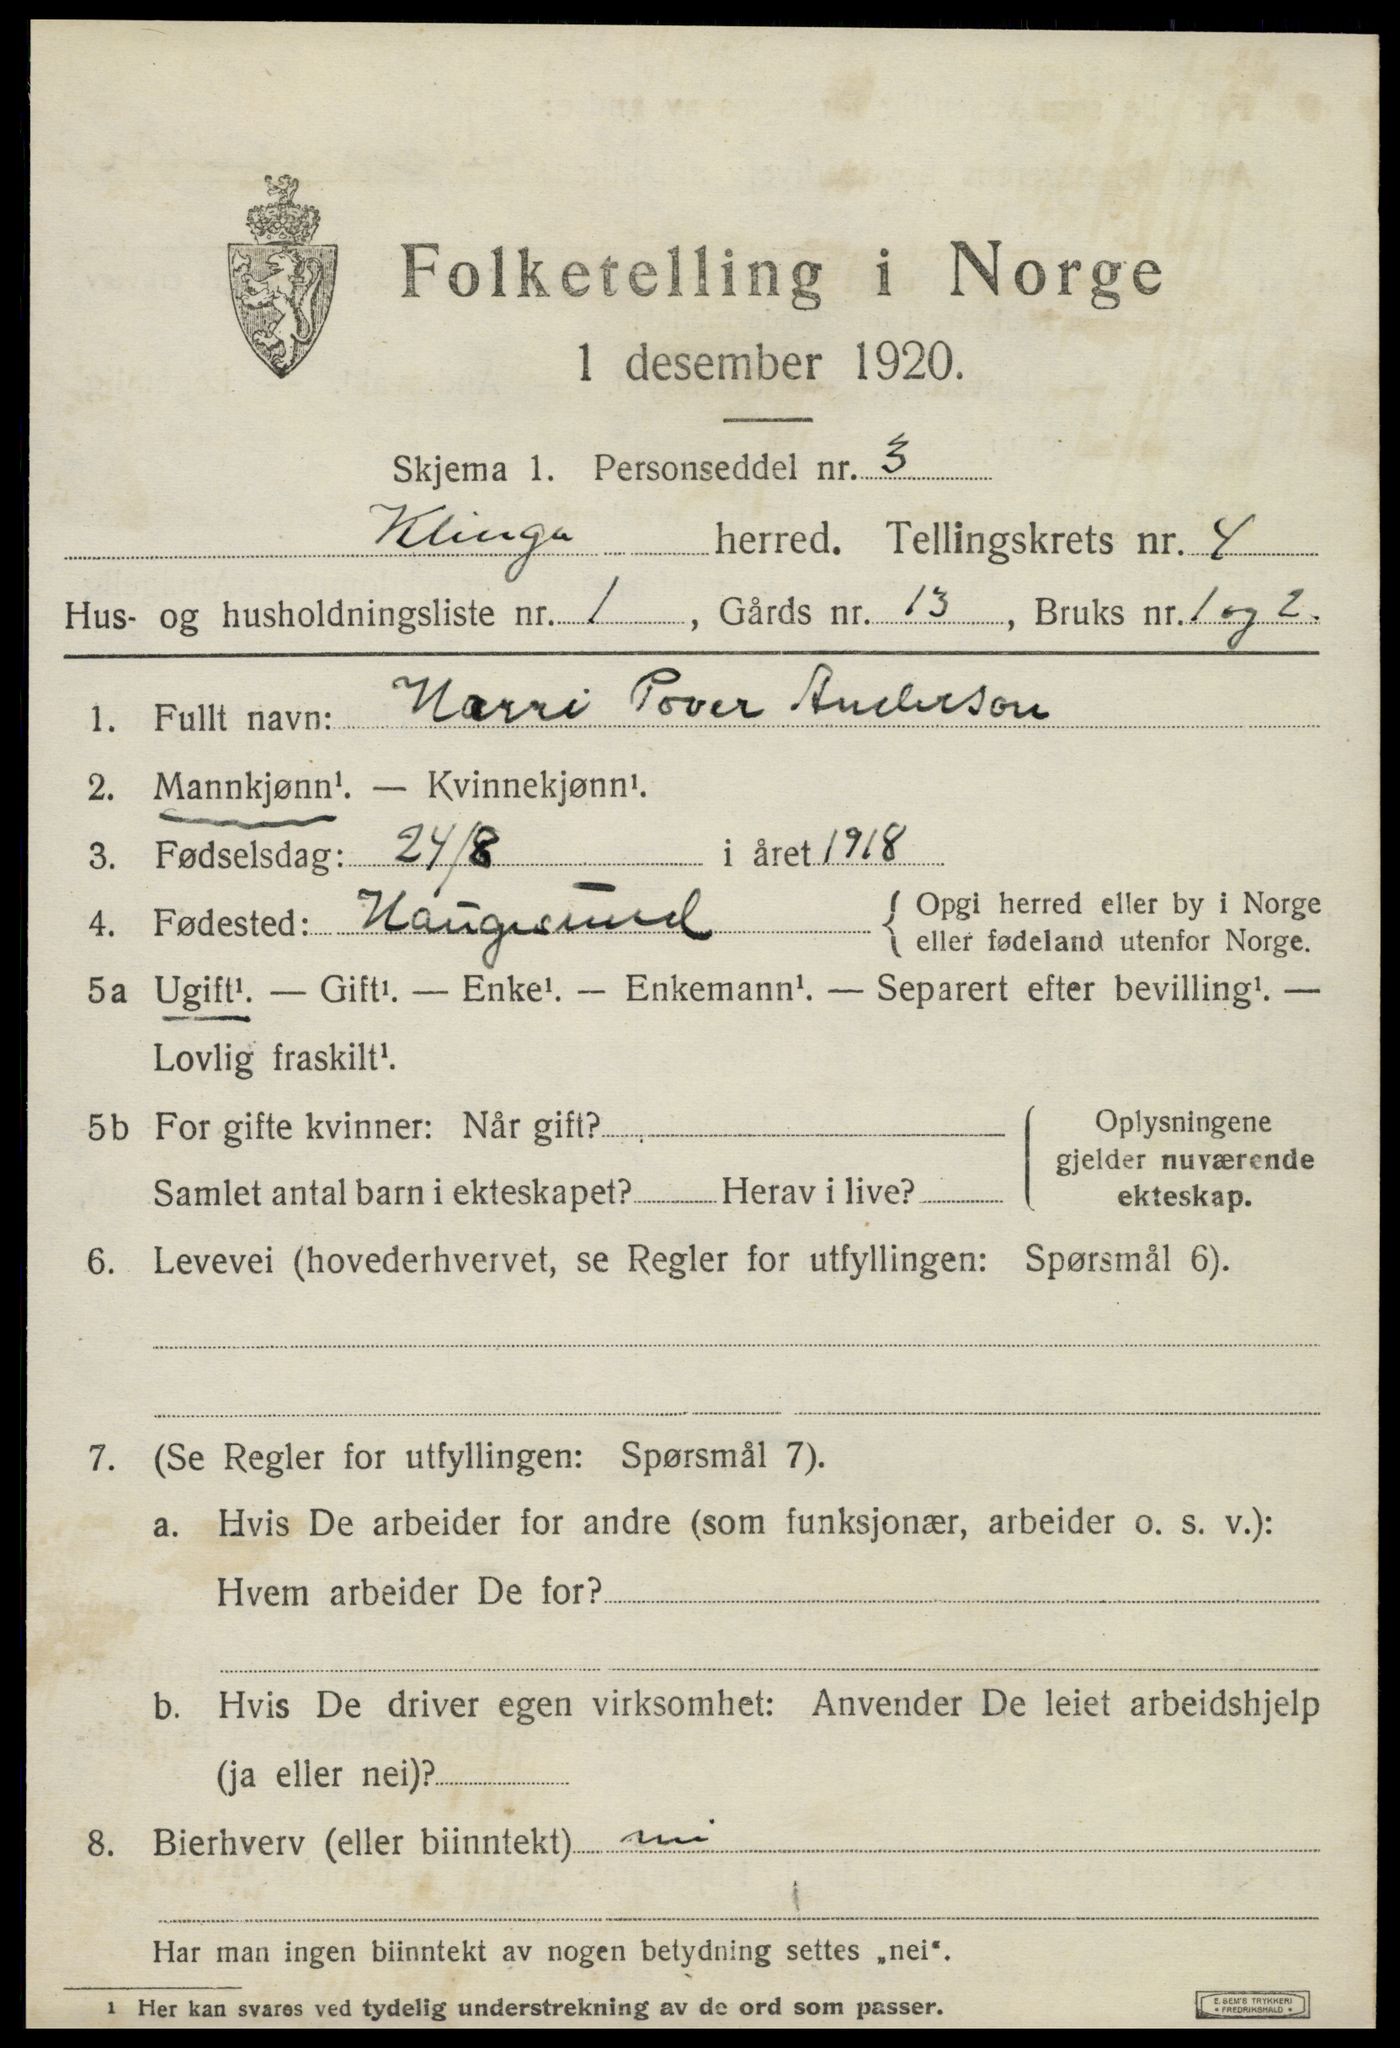 Folketelling i Norge
1 desember 1920.
Skjema 1. Personseddel nr. 3
Klinga herred. Tellingskrets nr. 4
Hus- og husholdningsliste nr. 1, Gårds nr. 13, Bruks nr. 1 og 2.
1. Fullt navn: Harri Pover Anderson
2. Mannkjønn¹. — Kvinnekjønn¹.
3. Fødselsdag: 24/8 i året 1918
4. Fødested: Haugesund { Opgi herred eller by i Norge
eller fødeland utenfor Norge.
5a Ugift¹. — Gift¹. — Enke¹. — Enkemann¹. — Separert efter bevilling¹. —
Lovlig fraskilt¹.
5b For gifte kvinner: Når gift?
Samlet antal barn i ekteskapet? Herav i live?
Oplysningene
gjelder nuværende
ekteskap.
6. Levevei (hovederhvervet, se Regler for utfyllingen: Spørsmål 6).
7. (Se Regler for utfyllingen: Spørsmål 7).
a. Hvis De arbeider for andre (som funksjonær, arbeider o. s. v.):
Hvem arbeider De for?
b. Hvis De driver egen virksomhet: Anvender De leiet arbeidshjelp
(ja eller nei)?
8. Bierhverv (eller biinntekt) nei
Har man ingen biinntekt av nogen betydning settes „nei“.
1 Her kan svares ved tydelig understrekning av de ord som passer.
E. SEM'S TRYKKERI
* FREDRIKSHALD *